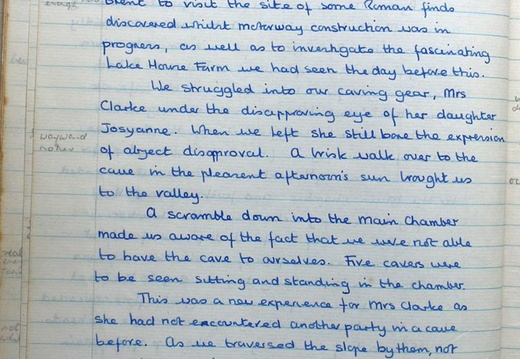 spent to visit the site of some Roman finds
discovered whilst motorway construction was in
progress, as well as to investigate the fascinating
Lake House Farm we had seen the day before this.
We struggled into our caving gear, Mrs
Clarke under the disapproving eye of her daughter
Josyanne. When we left she still bore the expression
of abject disapproval. A brisk walk over to the
cave in the pleasent afternoon's sun brought us
to the valley.
A scramble down into the main chamber
made us aware of the fact that we were not able
to have the cave to ourselves. Five cavers were
to be seen sitting and standing in the chamber.
This was a new experience for Mrs Clarke as
she had not encountered another party in a cave
before. As we traversed the slope by them, not
wayward